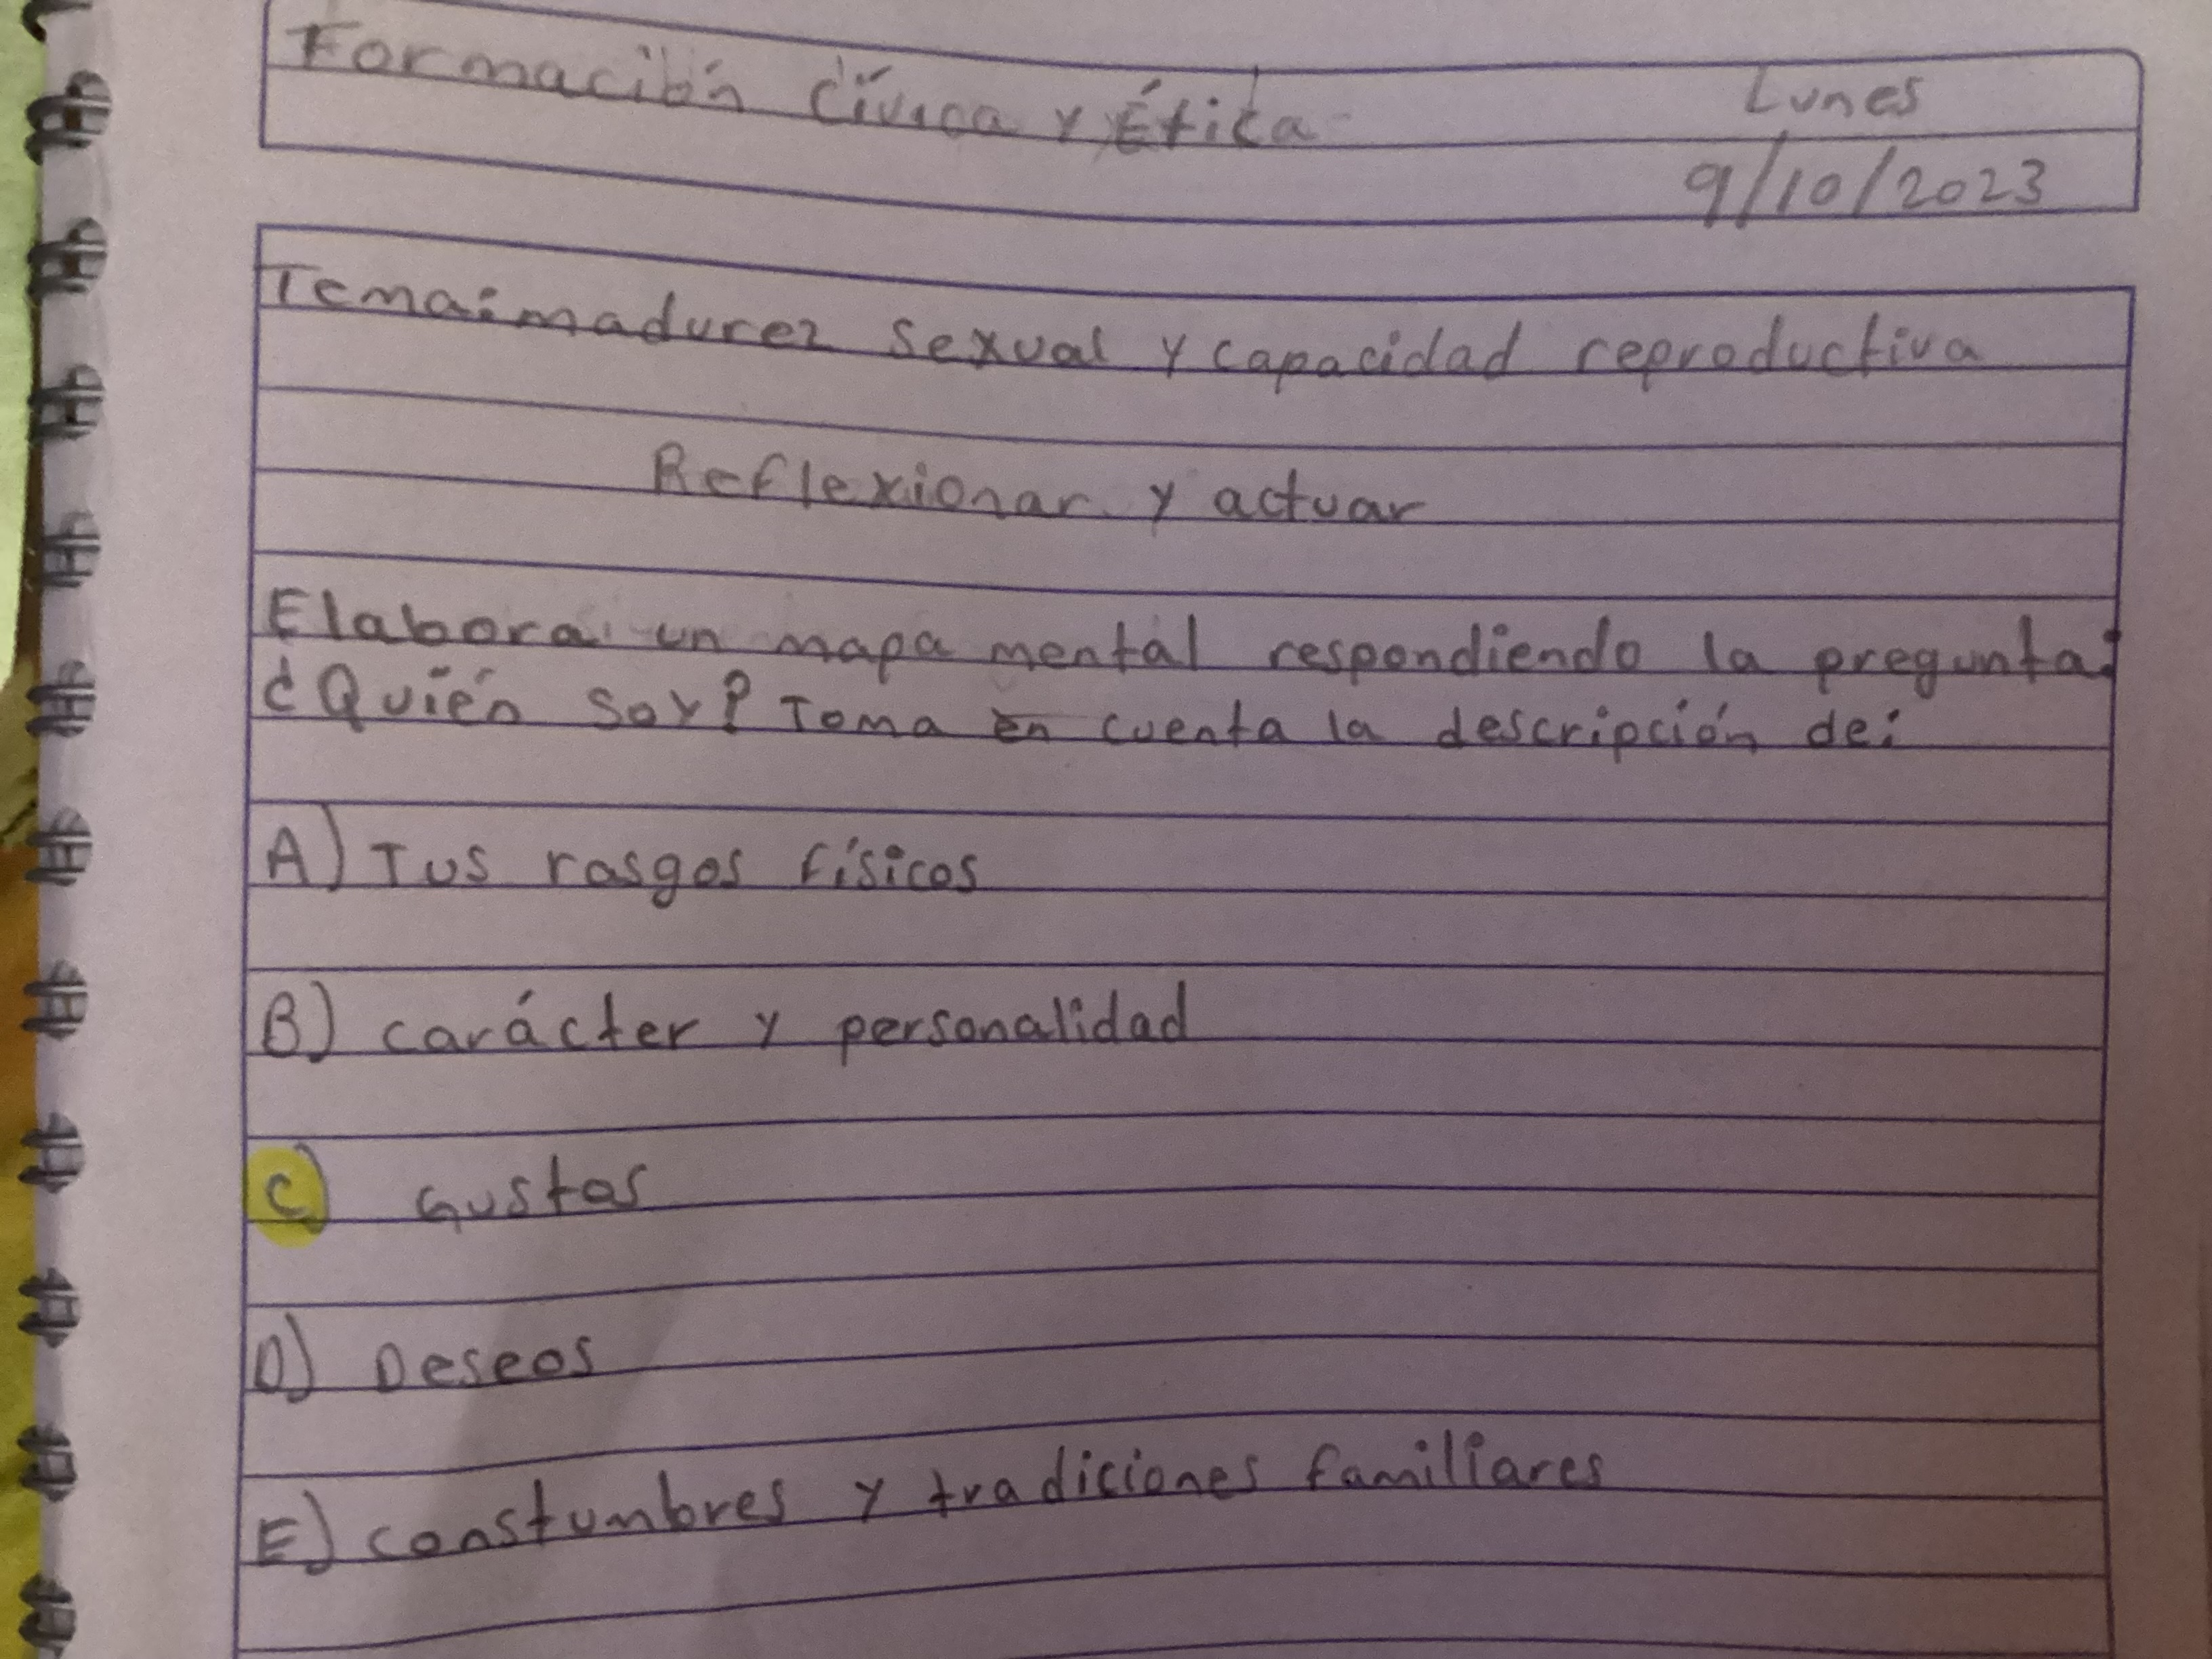 Formación Cívica y Ética
Lunes
9/10/2023
Tema: madurez sexual y capacidad reproductiva
Reflexionar y actuar
Elabora un mapa mental respondiendo la pregunta:
¿Quién soy? Toma en cuenta la descripción de:
A) Tus rasgos físicos
B) carácter y personalidad
C) Gustos
D) Deseos
E) constumbres y tradiciones familiares